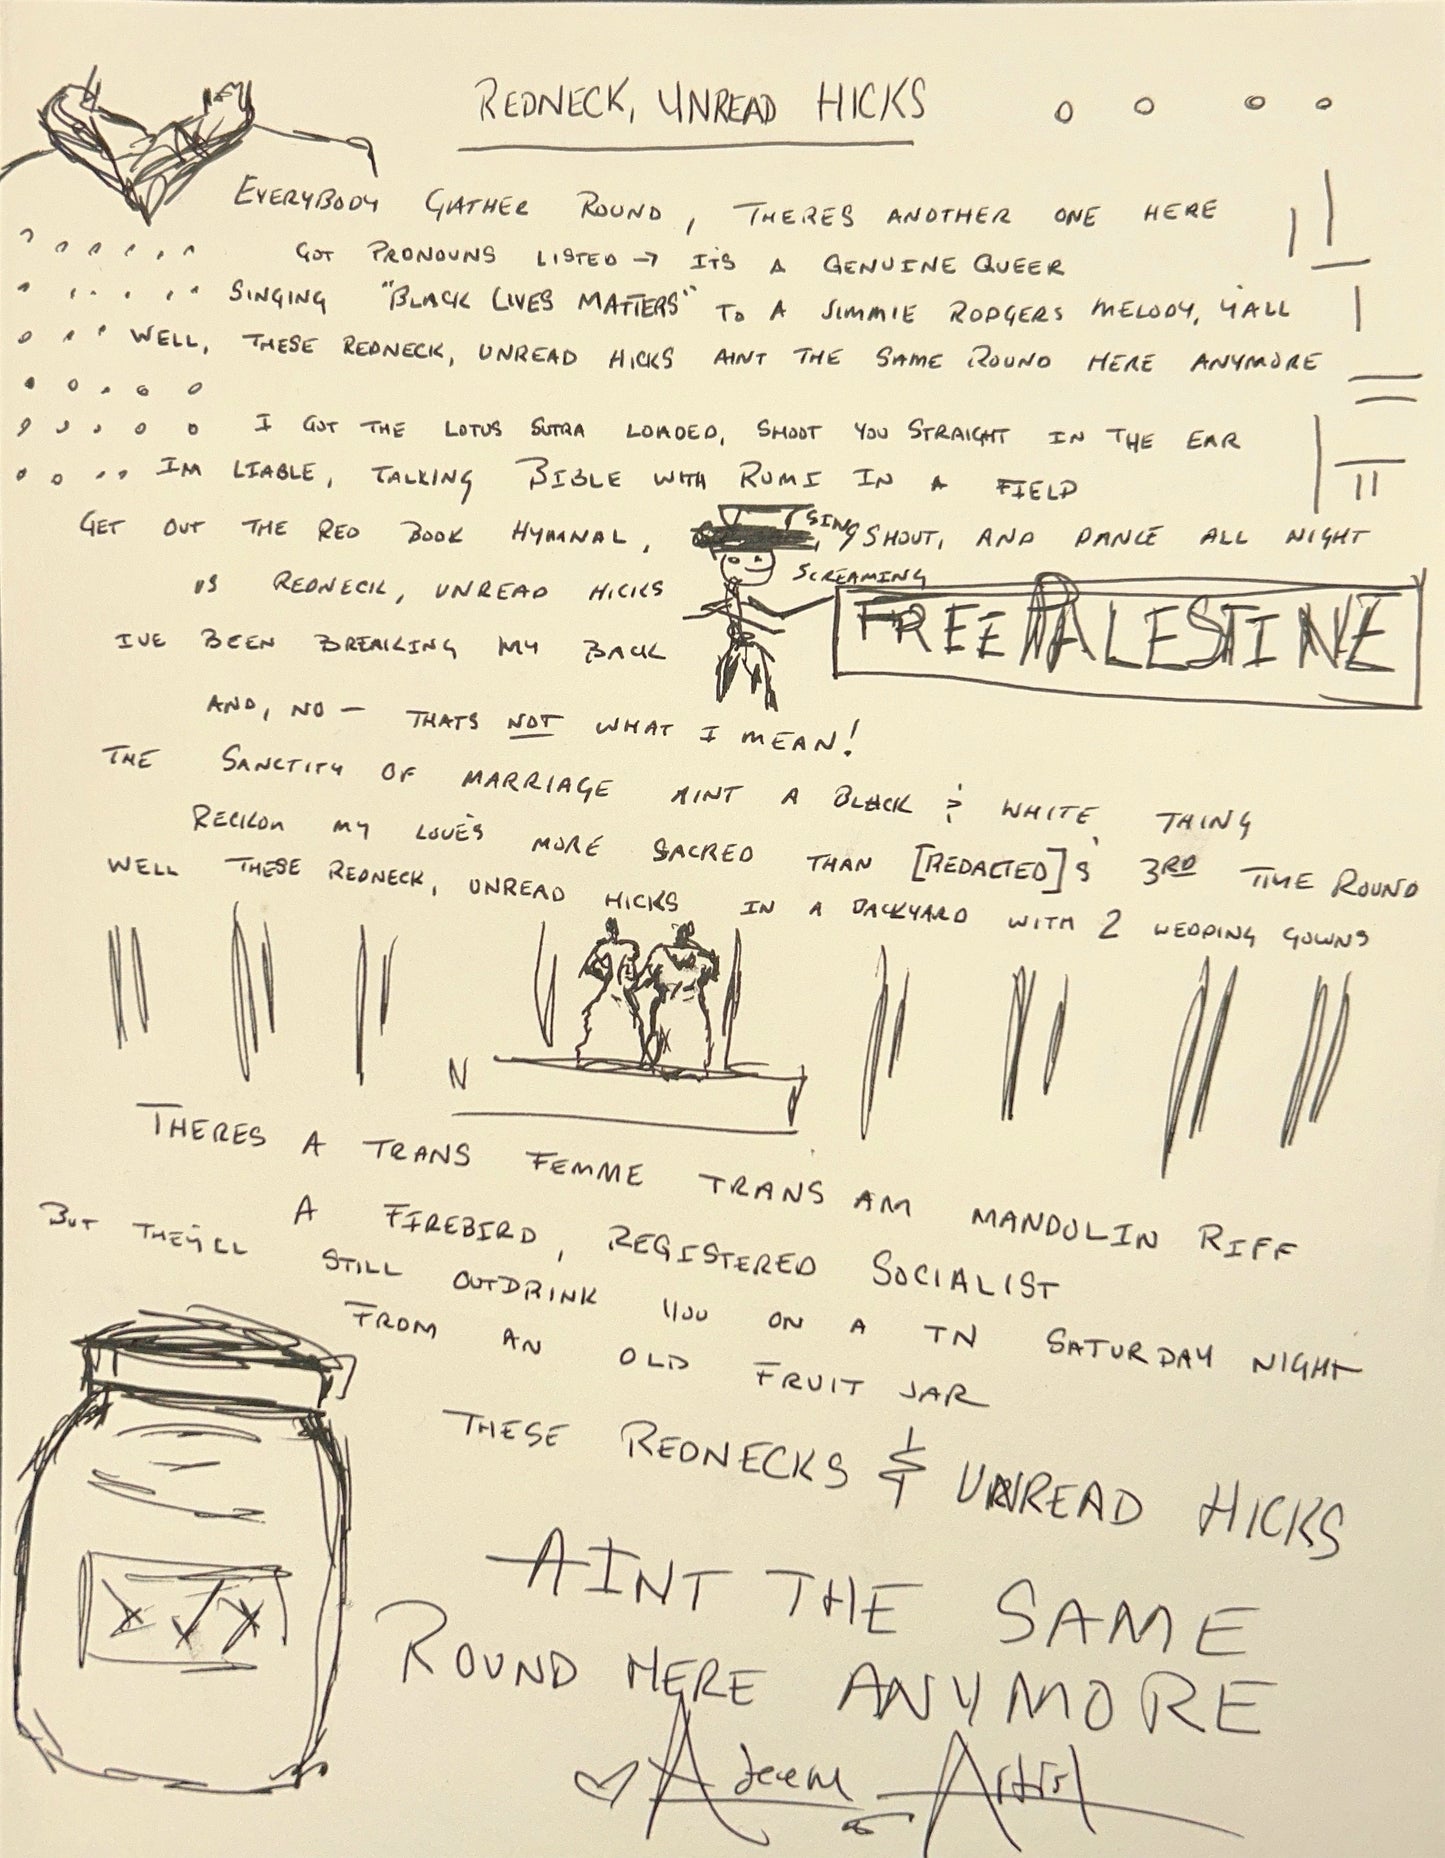 REDNECK, UNREAD HICKS
EVERYBODY GATHER ROUND, THERES ANOTHER ONE HERE
GOT PRONOUNS LISTED → IT'S A GENUINE QUEER
SINGING "BLACK LIVES MATTERS" TO A JIMMIE RODGERS MELODY, Y'ALL
WELL, THESE REDNECK, UNREAD HICKS AINT THE SAME ROUND HERE ANYMORE
I GOT THE LOTUS SUTRA LOADED, SHOOT YOU STRAIGHT IN THE EAR
IM LIABLE, TALKING BIBLE WITH RUMI IN A FIELD
GET OUT THE RED BOOK HYMNAL, SING, SHOUT, AND DANCE ALL NIGHT
US REDNECK, UNREAD HICKS SCREAMING
FREE PALESTINE
IVE BEEN BREAKING MY BACK
AND, NO — THATS NOT WHAT I MEAN!
THE SANCTITY OF MARRIAGE AINT A BLACK & WHITE THING
RECKON MY LOVE'S MORE SACRED THAN [REDACTED]'S 3RD TIME ROUND
WELL THESE REDNECK, UNREAD HICKS IN A BACKYARD WITH 2 WEDDING GOWNS
THERES A TRANS FEMME TRANS AM MANDOLIN RIFF
A FIREBIRD, REGISTERED SOCIALIST
BUT THEY'LL STILL OUTDRINK YOU ON A TN SATURDAY NIGHT
FROM AN OLD FRUIT JAR
THESE REDNECKS & UNREAD HICKS
AINT THE SAME
ROUND HERE ANYMORE
XXX